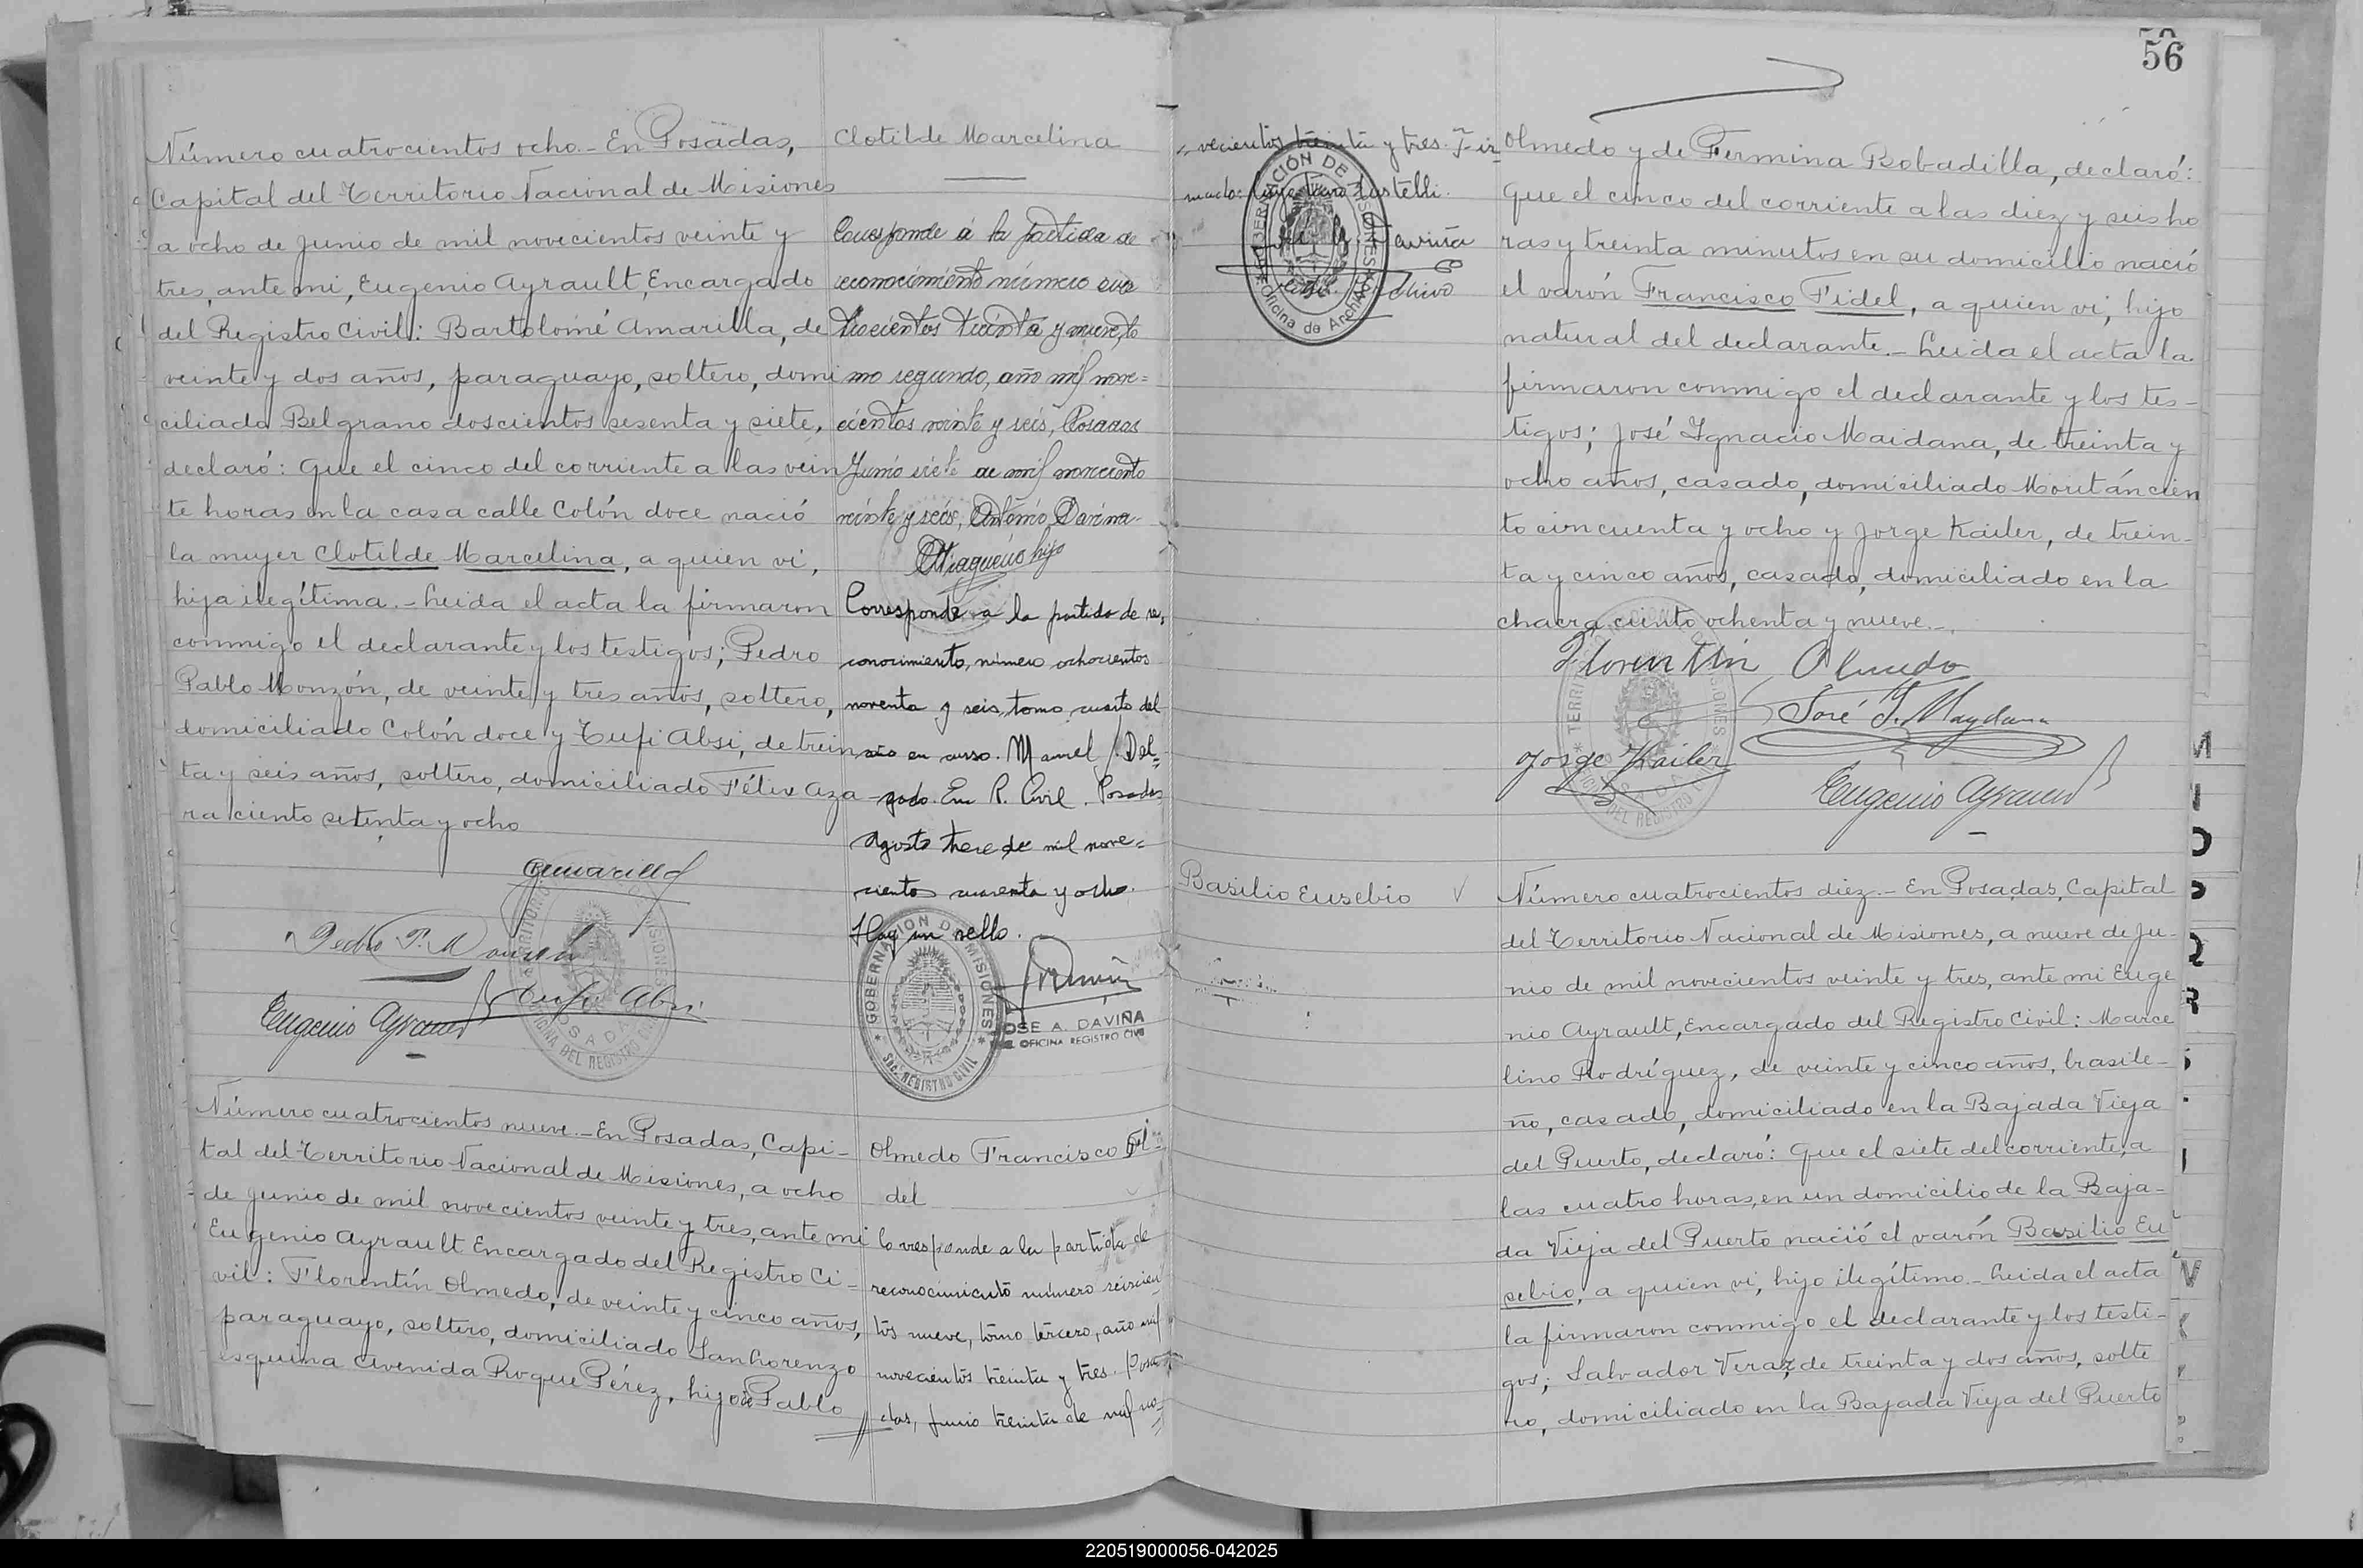 Número cuatrocientos ocho.- En Posadas,
Capital del Territorio Nacional de Misiones
a ocho de Junio de mil novecientos veinte y
tres, ante mi, Eugenio Ayrault, Encargado
del Registro Civil: Bartolomé Amarilla, de
veinte y dos años, paraguayo, soltero, domi
ciliado Belgrano doscientos sesenta y siete,
declaró: Que el cinco del corriente a las vein
te horas en la casa calle Colón doce nació
la mujer Clotilde Marcelina, a quien vi,
hija ilegítima.- Leida el acta la firmaron
conmigo el declarante y los testigos; Pedro
Pablo Monzón, de veinte y tres años, soltero,
domiciliado Colón doce y Tufi Absi, de trein
ta y seis años, soltero, domiciliado Félix Aza
ra ciento setenta y ocho
BAmarilla
Pedro P. Monzón
Tufi Absi
Eugenio Ayrault
Clotilde Marcelina
Corresponde á la partida de
reconocimiento número cua
trocientos treinta y nueve, to
mo segundo, año mil nove=
cientos veinte y seis, Posadas
Junio siete de mil novecientos
veinte y seis, Antonio Davina.
hijo
Corresponde a la partida de re,
conocimiento, número ochocientos
noventa y seis, tomo cuarto del
año en curso. Manuel J. Del=
gado. Enc R. Civil. Posadas
Agosto trece de mil nove=
cientos cuarenta y ocho.
Hay un sello.
GOBERNACION DE MISIONES
Sec. REGISTRO CIVIL
JOSE A. DAVIÑA
OFICINA REGISTRO CIVIL
Número cuatrocientos nueve.- En Posadas, Capi-
tal del Territorio Nacional de Misiones, a ocho
de Junio de mil novecientos veinte y tres, ante mi
Eugenio Ayrault Encargado del Registro Ci-
vil: Florentín Olmedo, de veinte y cinco años,
paraguayo, soltero, domiciliado San Lorenzo
esquina Avenida Roque Pérez, hijo de Pablo
Olmedo Francisco Fi-
del
Corresponde a la partida de
reconocimiento número seiscien
tos nueve, tomo tercero, año mil
novecientos treinta y tres. Posa
das, Junio treinta de mil no=
56
vecientos treinta y tres. Fir
mado: Castelli.
GOBERNACIÓN DE MISIONES
Oficina de Archivo
Daviña
Archivo
Olmedo y de Fermina Bobadilla, declaró:
Que el cinco del corriente a las diez y seis ho
ras y treinta minutos en su domicilio nació
el varón Francisco Fidel, a quien vi, hijo
natural del declarante.- Leida el acta la
firmaron conmigo el declarante y los tes-
tigos; José Ignacio Maidana, de treinta y
ocho años, casado, domiciliado Moritán cien
to cincuenta y ocho y Jorge Kailer, de trein-
ta y cinco años, casado, domiciliado en la
chacra ciento ochenta y nueve.-
Florentin Olmedo
José I. Maydana
Jorge Kailer
Eugenio Ayrault
Basilio Eusebio
Número cuatrocientos diez.- En Posadas, Capital
del Territorio Nacional de Misiones, a nueve de Ju-
nio de mil novecientos veinte y tres, ante mi Euge
nio Ayrault, Encargado del Registro Civil: Marce
lino Rodríguez, de veinte y cinco años, brasile-
ño, casado, domiciliado en la Bajada Vieja
del Puerto, declaró: Que el siete del corriente, a
las cuatro horas, en un domicilio de la Baja-
da Vieja del Puerto nació el varón Basilio Eu
sebio, a quien vi, hijo ilegítimo.- Leida el acta
la firmaron conmigo el declarante y los testi-
gos; Salvador Veraz, de treinta y dos años, solte
ro, domiciliado en la Bajada Vieja del Puerto
220519000056-042025